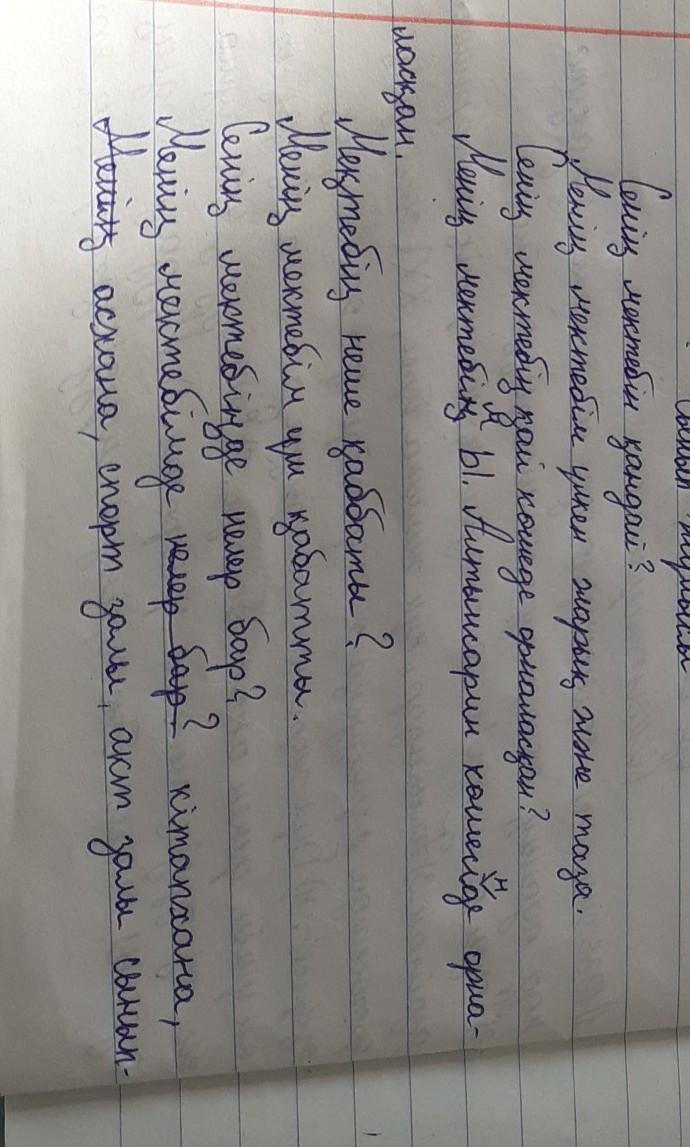 Сынып жұмысы
Сенің мектебің қандай?
Менің мектебім үлкен жарық және таза.
Сенің мектебің қай көшеде орналасқан?
Менің мектебің Ы. Алтынсарин көшесінде орна-
ласқан.
Мектебің неше қаббаты?
Менің мектебім үш қабатты.
Сенің мектебіңде нелер бар?
Менің мектебімде нелер бар? кітапхана,
Менің асхана, спорт залы, акт залы сынып-